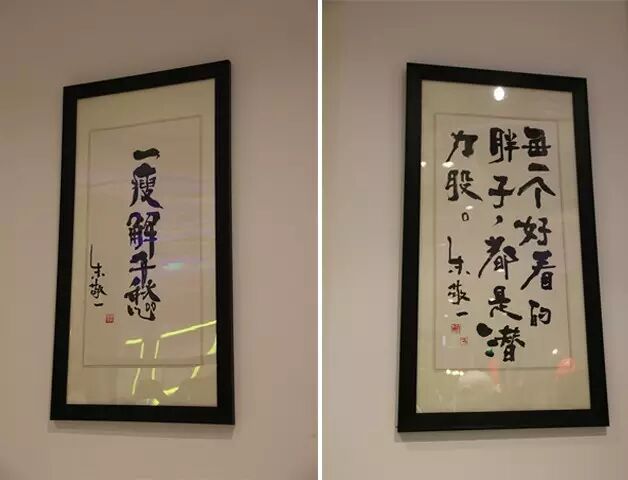 一瘦解千愁
朱敬一
每一个好看的
胖子，都是潜
力股。
朱敬一